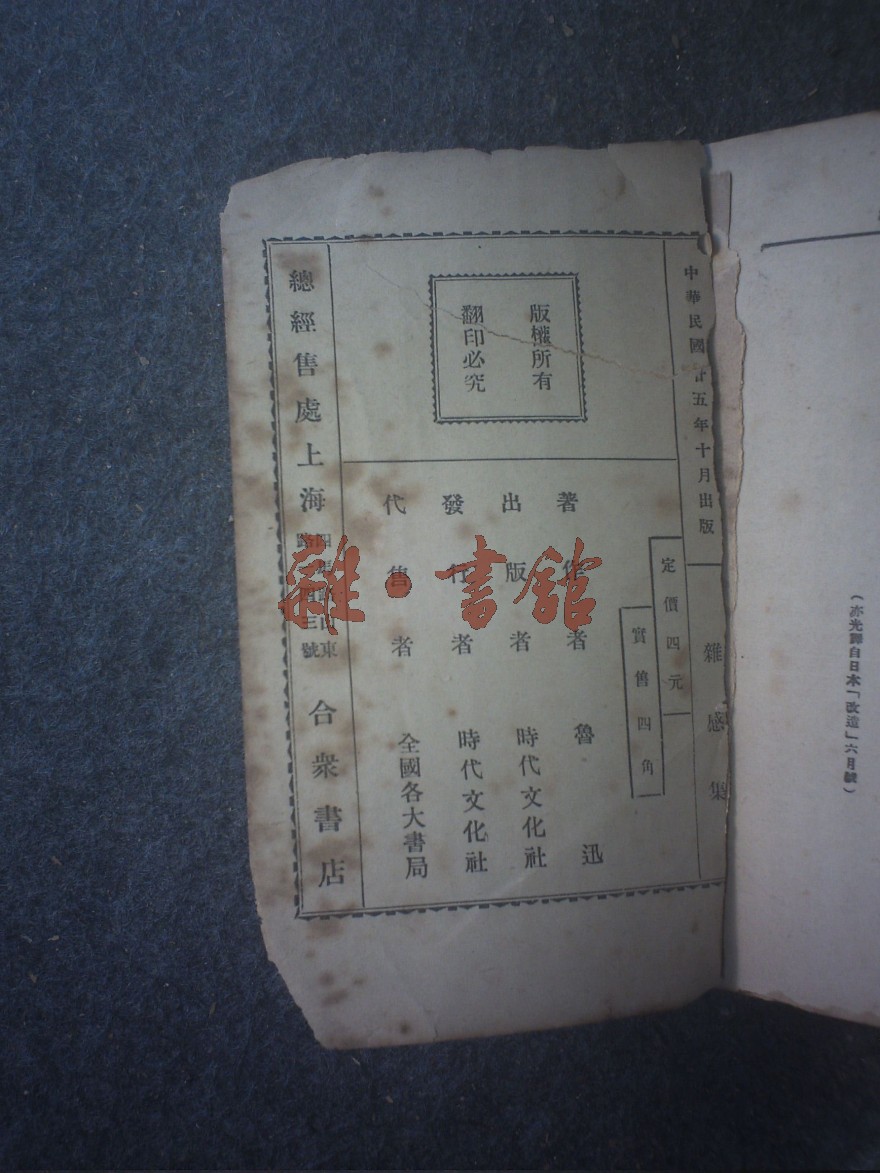 中華民國廿五年十月出版
雜感集
定價四元
實售四角
版權所有
翻印必究
著作者 魯迅
出版者 時代文化社
發行者 時代文化社
代售者 全國各大書局
總經售處上海
路
三號
東
合衆書店
(亦光譯自日本「改造」六月號)
雜·書館